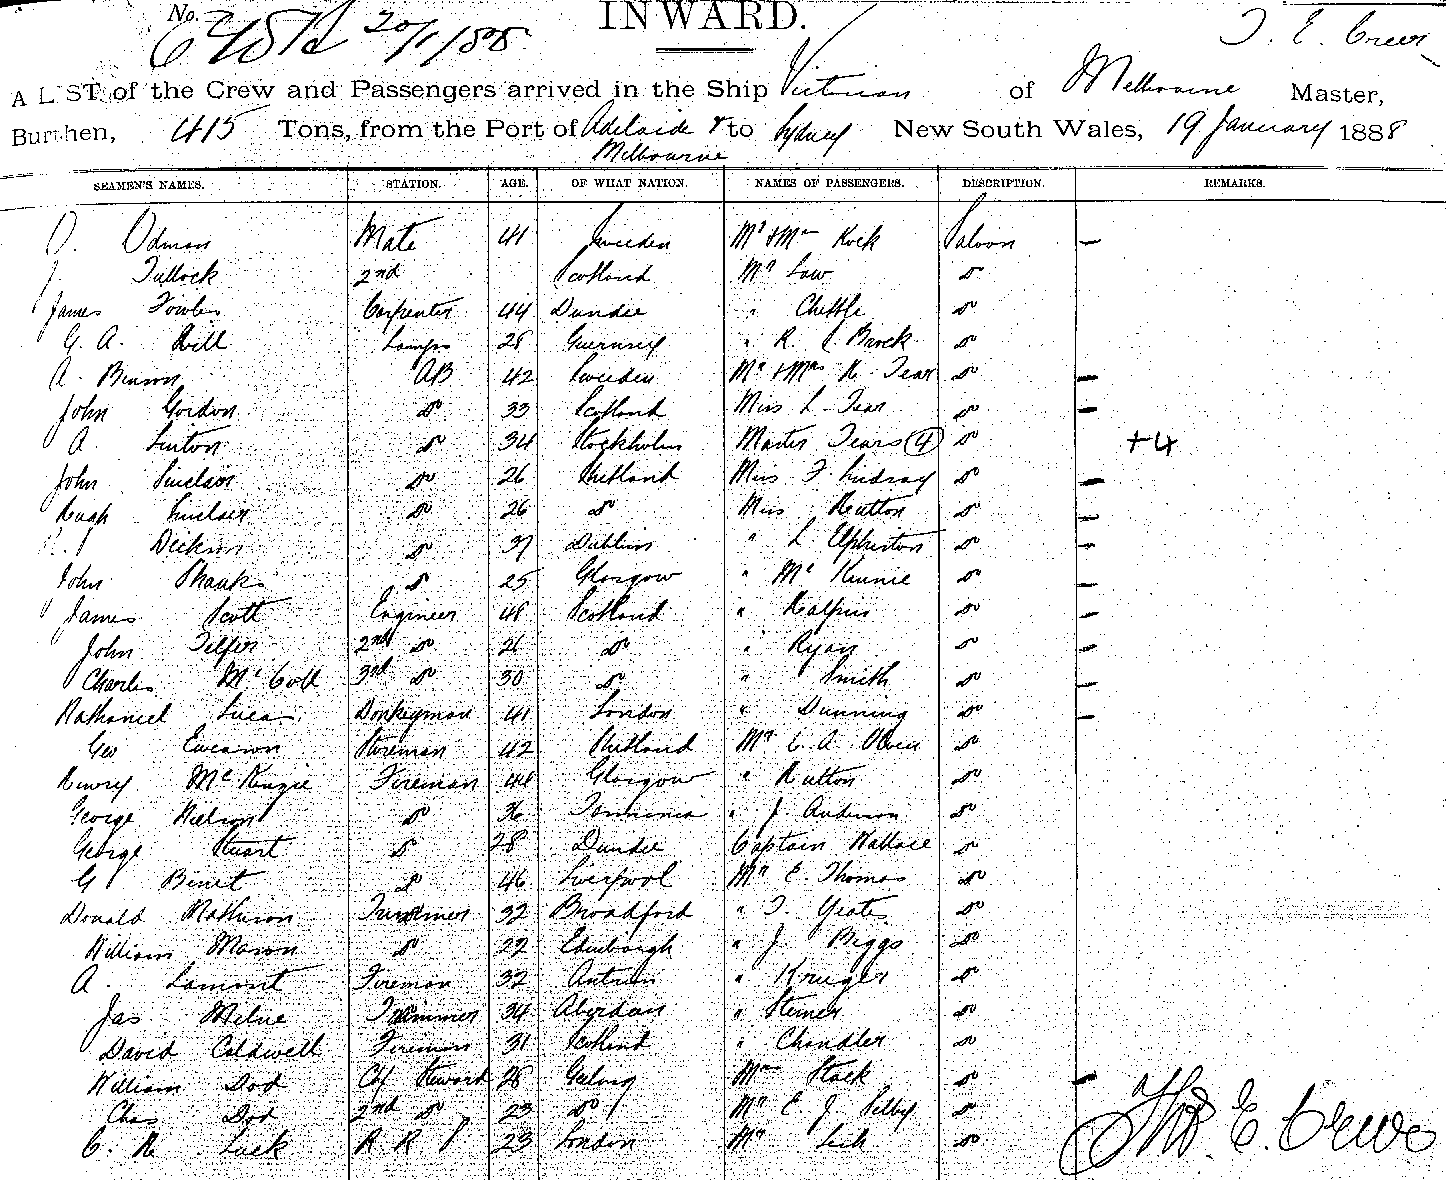 No.
20/1/88
INWARD.
T. E. Crews
A LIST of the Crew and Passengers arrived in the Ship Victorian of Melbourne Master,
Burthen, 415 Tons, from the Port of Adelaide & Melbourne to Sydney New South Wales, 19 January 1888
SEAMEN'S NAMES. STATION. AGE. OF WHAT NATION. NAMES OF PASSENGERS. DESCRIPTION. REMARKS.
O. Odman Mate 41 Sweeden Mr & Mrs Rock Saloon –
J. Tullock 2nd Scotland Mr Law do
James Fowler Carpenter 44 Dundee " Cheffle do
G. A. Hill Lamps 28 Guernsey " R. Brock do
A. Benson AB 42 Sweeden Mr & Mrs H. Tear do –
John Gordon do 33 Scotland Miss L. Tear do –
A. Linton do 34 Stockholm Master Tears (4) do +4
John Sinclair do 26 Shetland Miss F. Lindsay do –
Hugh Sinclair do 26 do Miss Hutton do –
Dickson do 37 Dublin " L Elphinston do –
John Shanks do 25 Glasgow " McKinnie do –
James Scott Engineer 48 Scotland " Halpin do –
John Telfer 2nd do 26 do " Ryan do –
Charles McColl 3rd do 30 do " Smith do –
Nathaniel Lucas Donkeyman 41 London " Dunning do –
Geo Ewearson Storeman 42 Shetland Mr C. A. do
Henry McKenzie Fireman 44 Glasgow " Hutton do
George Nielson do 36 Tasmania " J. Anderson do
George Stuart do 28 Dundee Captain Wallace do
G Binet do 46 Liverpool Mr E. Thomas do
Donald Mathieson Trimmer 32 Broadford " T. Yeates do
William Mason do 22 Edinburgh " J. Biggs do
A. Lamont Fireman 32 Antrim " Kruger do
Jas Milne Trimmer 34 Aberdeen " Steiner do
David Caldwell Fireman 31 Scotland " Chandler do
William Dod Chf Steward 28 Geelong Mrs Stack do –
Chas Dod 2nd do 23 do Mr E. J. Selby do
C. H. Luck 23 London Mr do
Thos. E. Crews